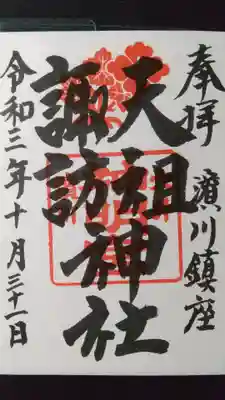 奉拝
濱川鎮座
天祖神社
諏訪
令和三年十月三十一日